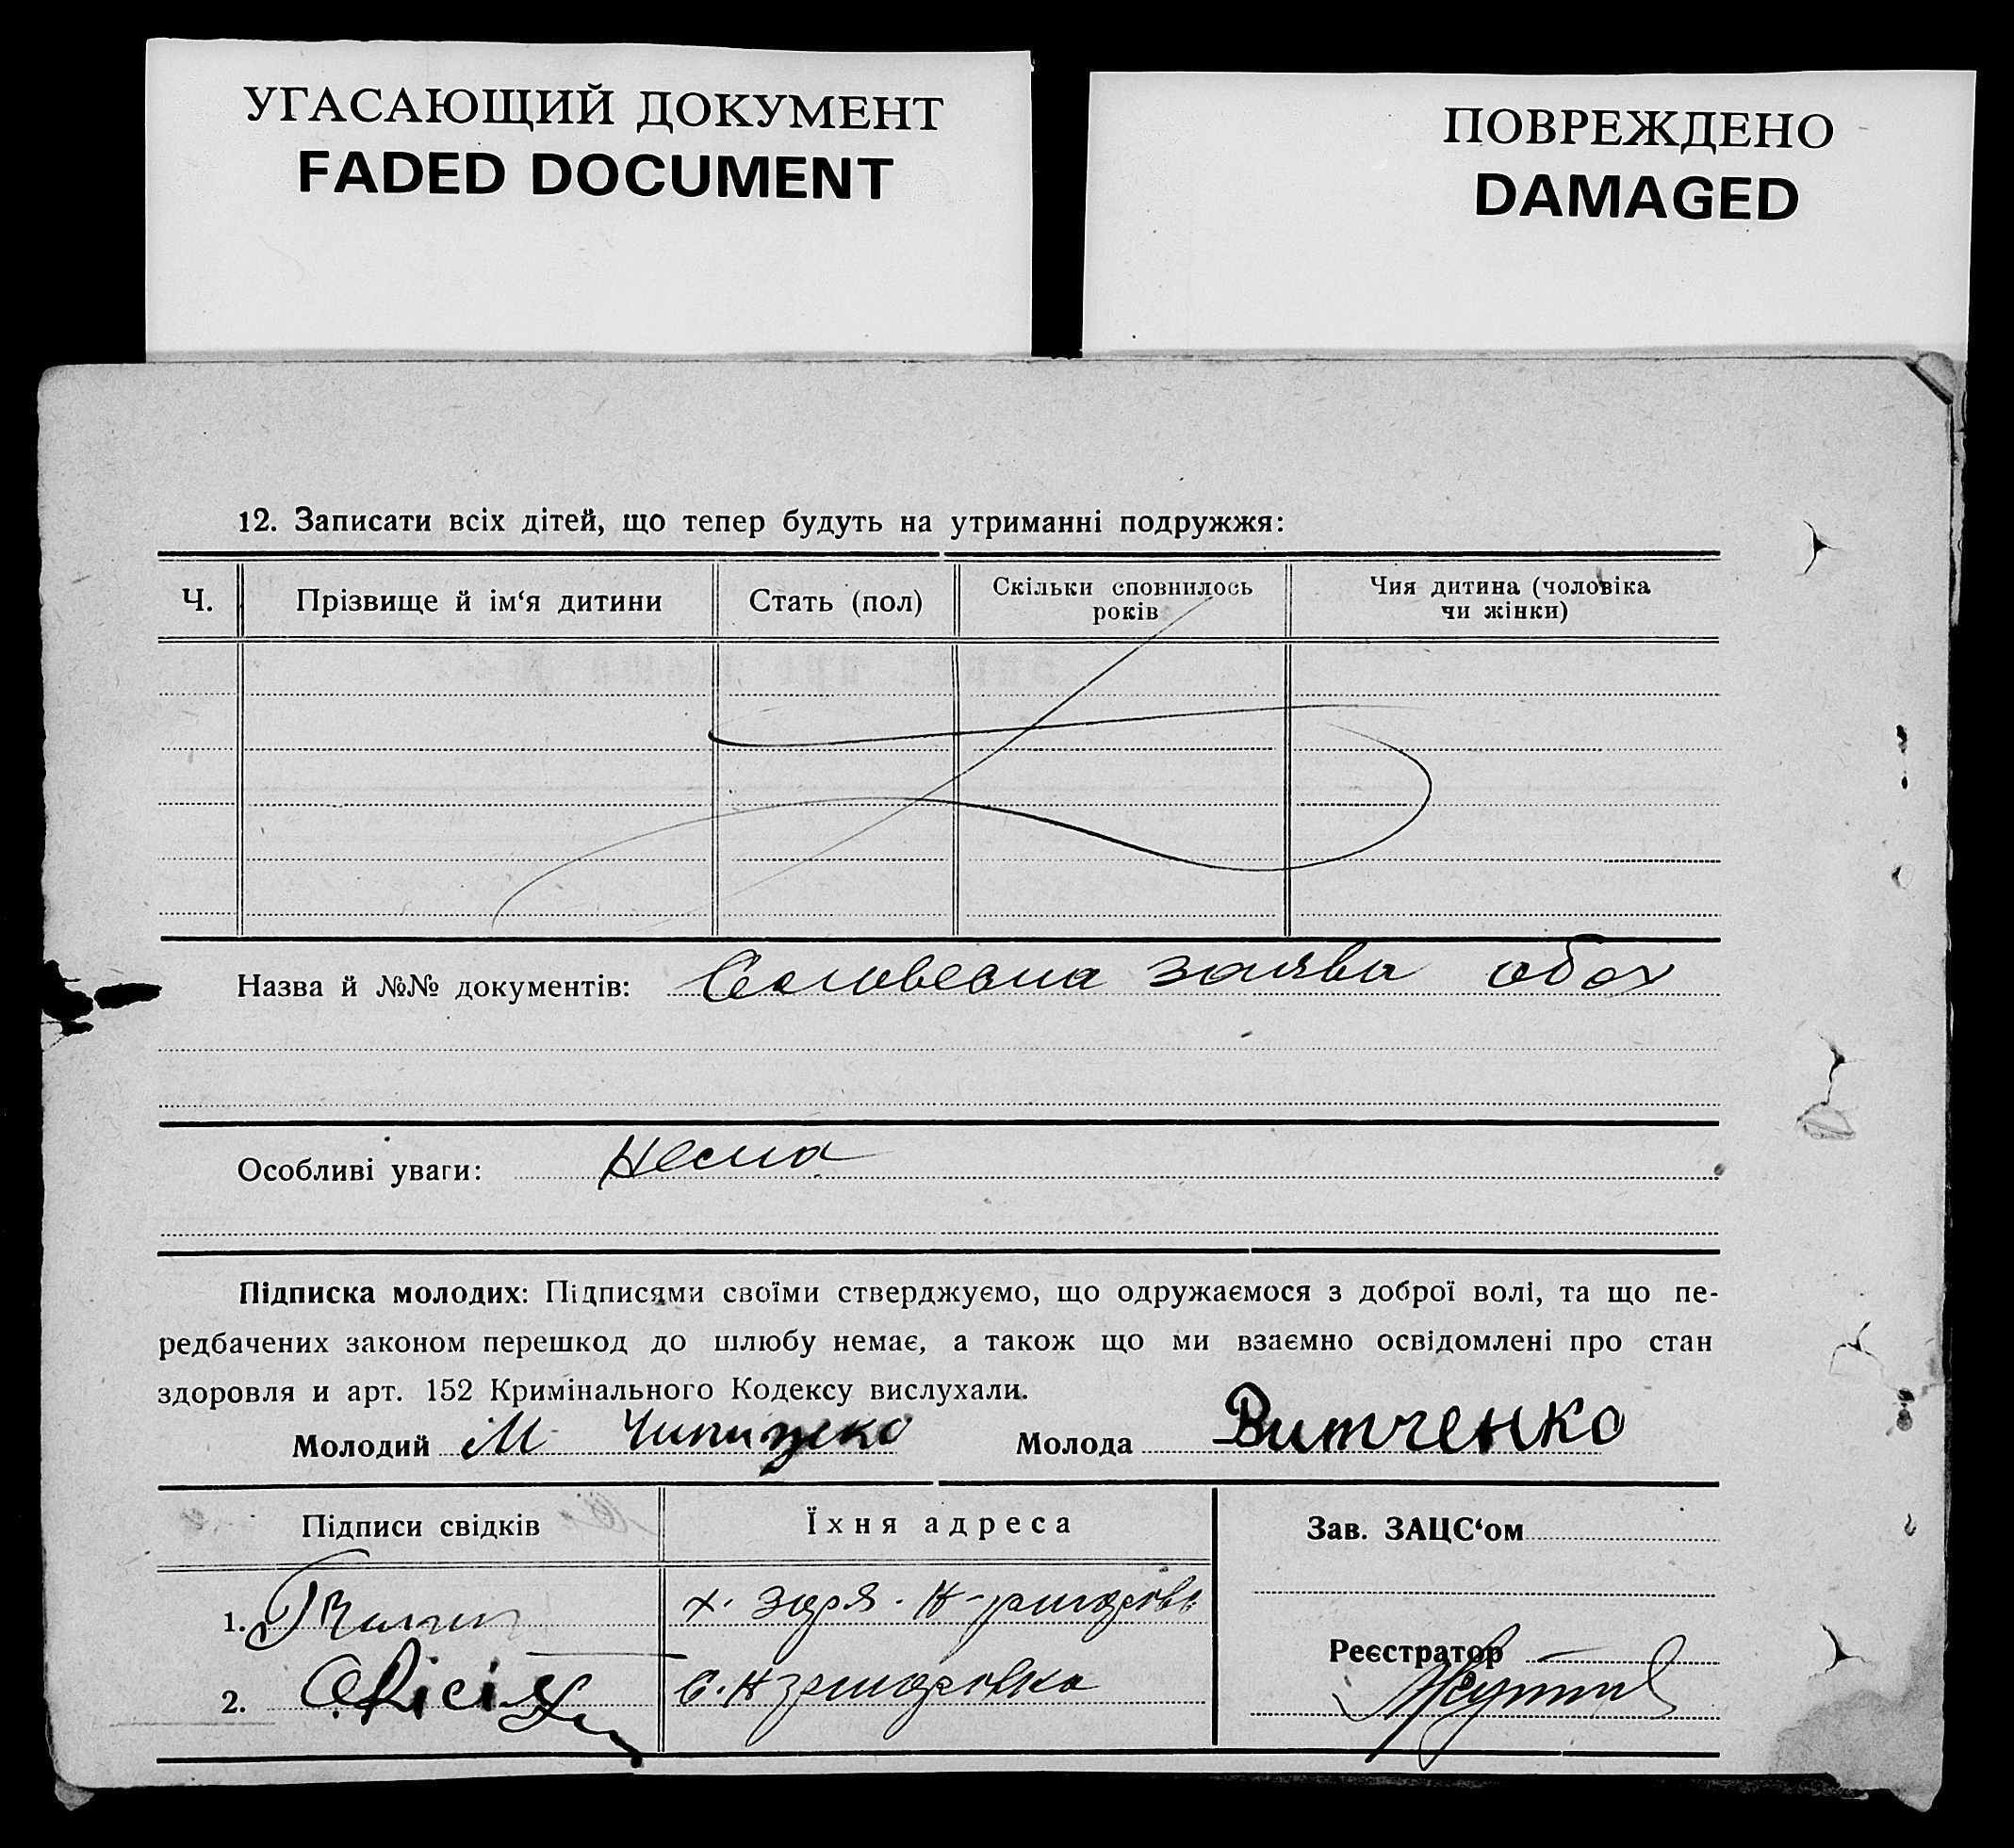 УГАСАЮЩИЙ ДОКУМЕНТ
FADED DOCUMENT
ПОВРЕЖДЕНО
DAMAGED
12. Записати всіх дітей, що тепер будуть на утриманні подружжя:
Ч. Прізвище й ім‘я дитини Стать (пол) Скільки сповнилось років Чия дитина (чоловіка чи жінки)
Назва й №№ документів: заява обох
Особливі уваги: Нема
Підписка молодих: Підписями своїми стверджуємо, що одружаємося з доброї волі, та що пе-
редбачених законом перешкод до шлюбу немає, а також що ми взаємно освідомлені про стан
здоровля и арт. 152 Кримінального Кодексу вислухали.
Молодий М Молода Витченко
Підписи свідків Їхня адреса Зав. ЗАЦС‘ом
1. х. Зоря
Реєстратор
2. с.